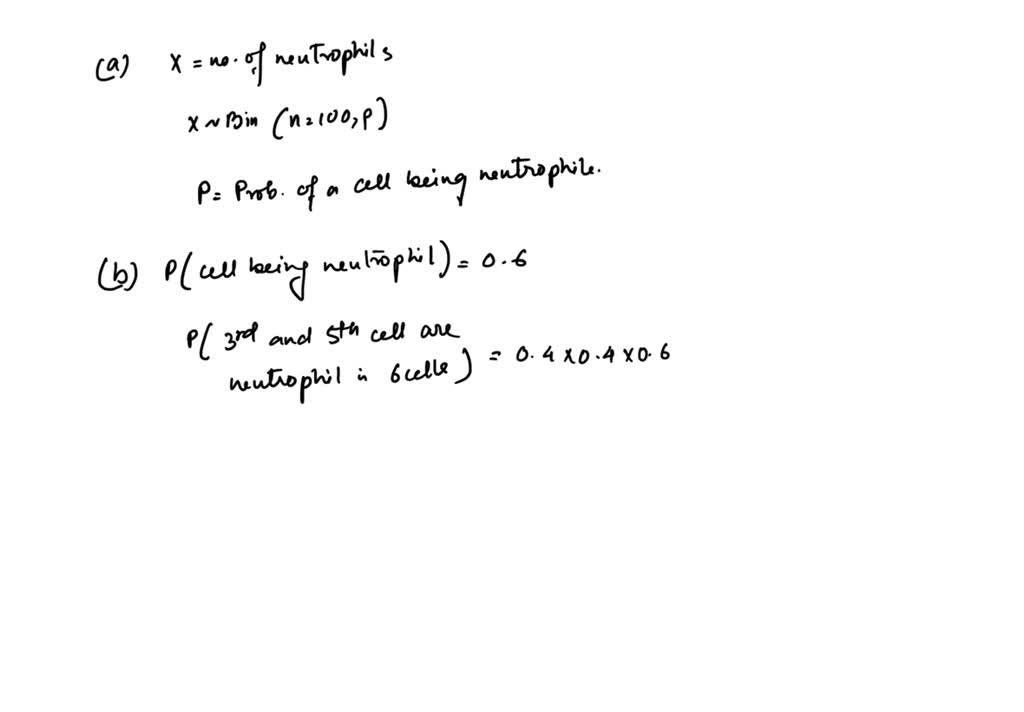 (a) X = no. of neutrophils
X ~ Bin (n=100, p)
P = Prob. of a cell being neutrophile.
(b) P(cell being neutrophil) = 0.6
P( 3rd and 5th cell are
neutrophil in 6 cells ) = 0.4 x 0.4 x 0.6